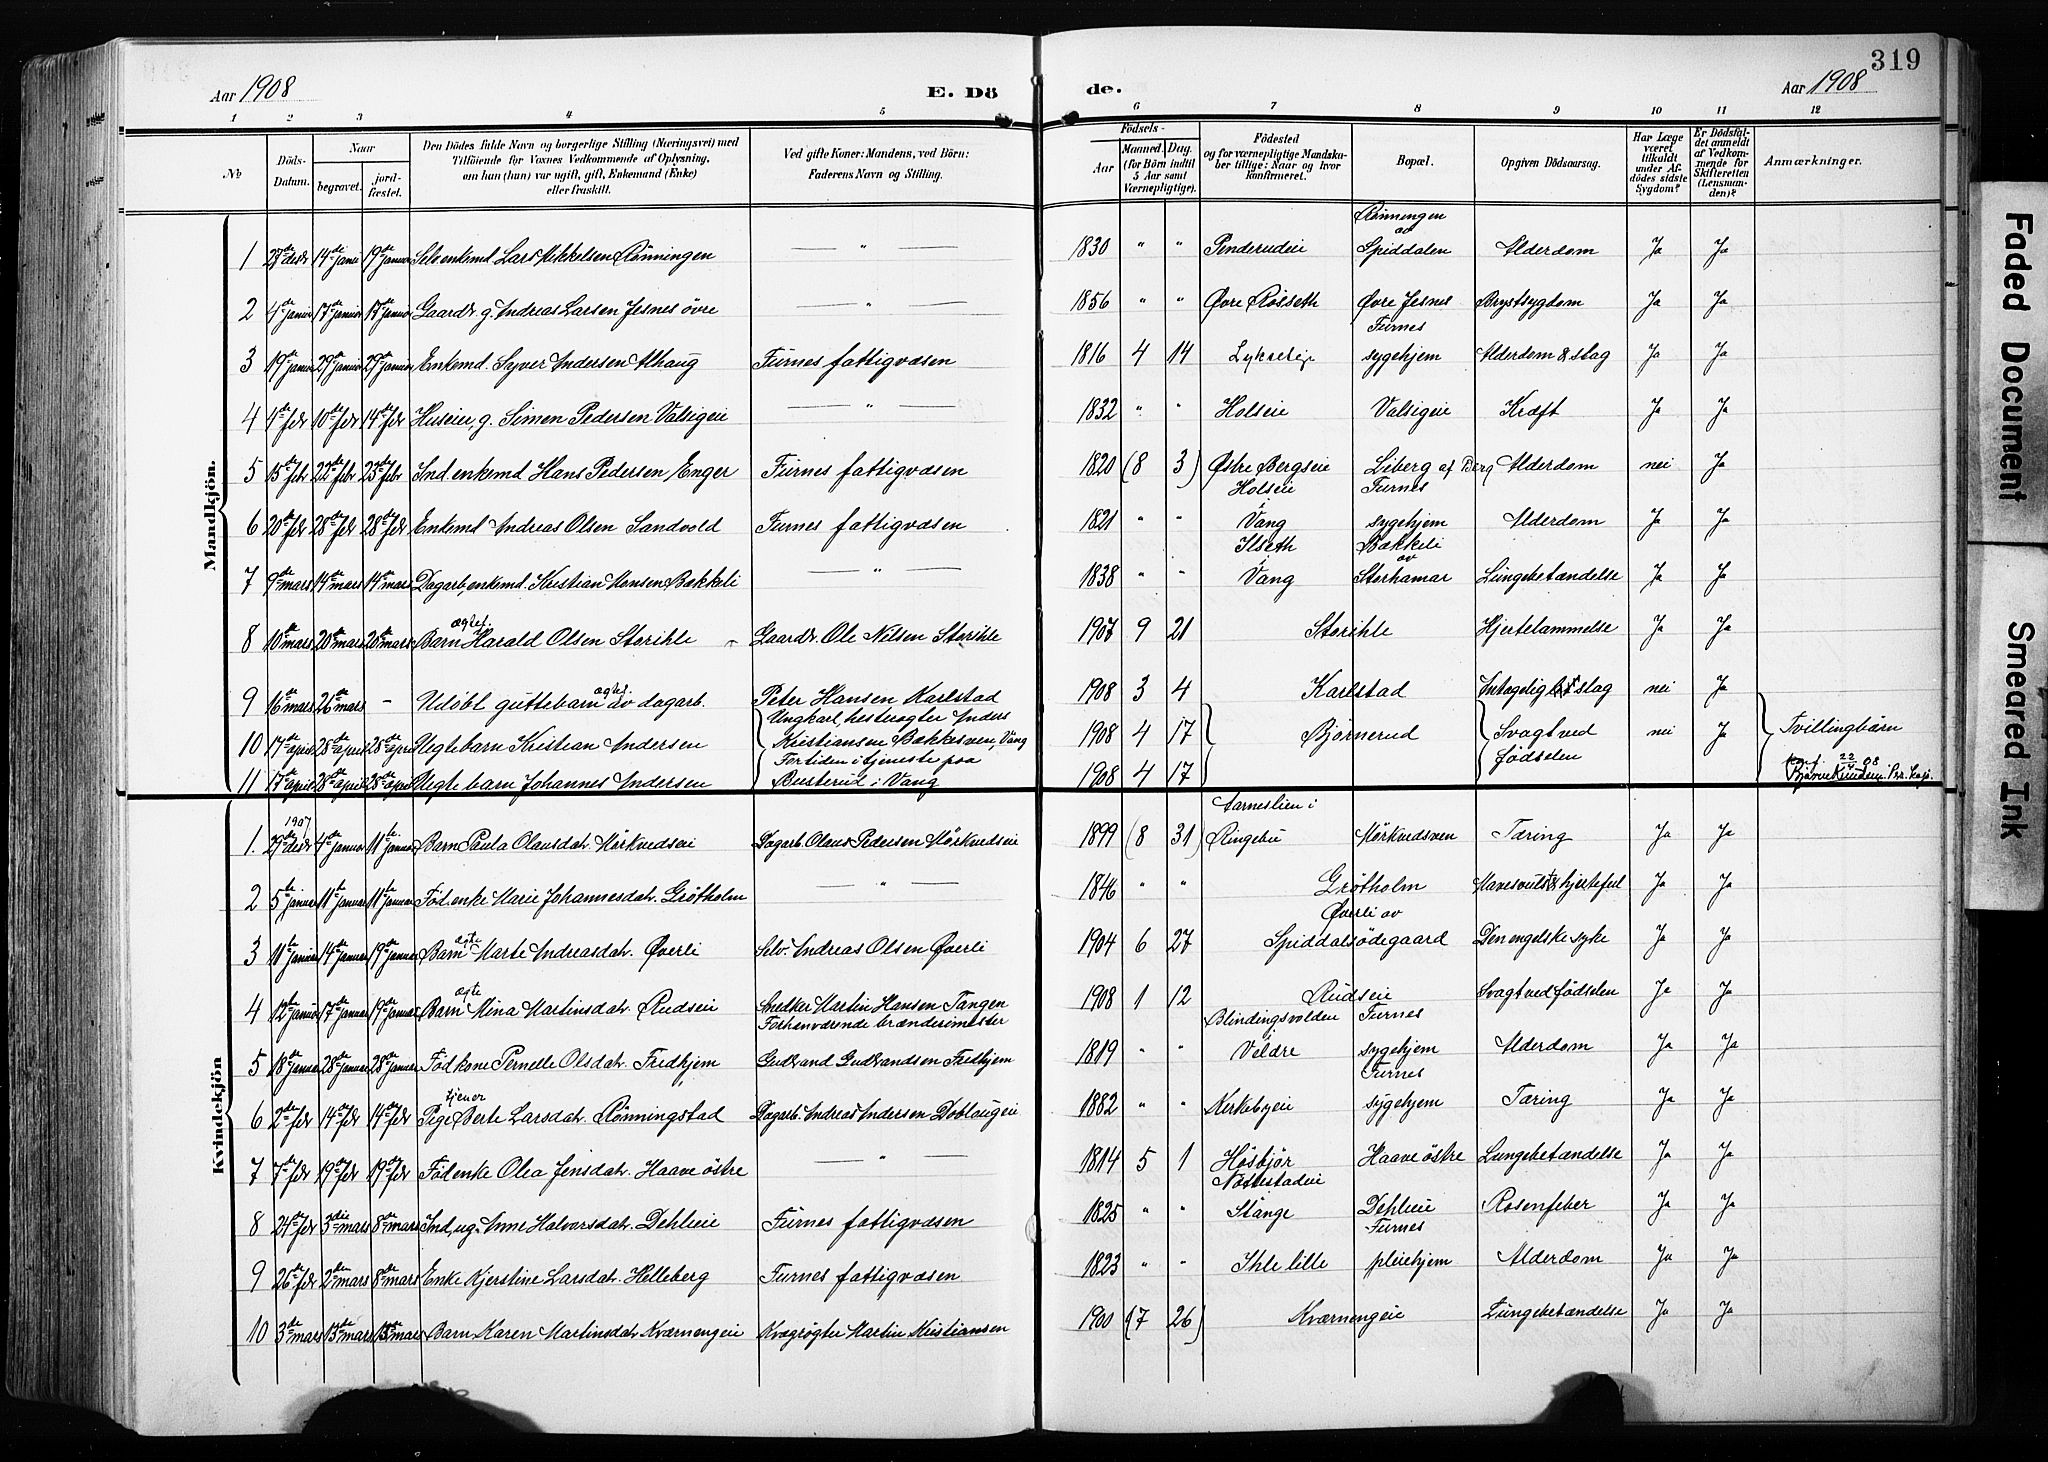 319
Aar 1908
E. Dö
de.
Aar 1908
1 2 3 4 5 6 7 8 9 10 11 12
No
Döds-Datum.
Naar
begravet.
jord-fæstet.
Den Dödes fulde Navn og borgerlige Stilling (Næringsvei) med
Tilföiende for Voxnes Vedkommende af Oplysning,
om han (hun) var ugift, gift, Enkemand (Enke)
eller fraskilt.
Ved gifte Koner: Mandens, ved Börn:
Faderens Navn og Stilling.
Födsels-
Aar
Maaned. Dag.
(for Börn indtil
5 Aar samt
Værnepligtige).
Födested
og for værnepligtige Mandska-
ber tillige: Naar og hvor
konfirmeret.
Bopæl.
Opgiven Dödsaarsag.
Har Læge
været
tilkaldt
under Af-
dödes sidste
Sygdom?
Er Dödsfal-
det anmeldt
af Vedkom-
mende for
Skifteretten
(Lensman-
den)?
Anmærkninger.
Mandkjön.
1 27de desbr 14de januar 19de januar Selv. enkemd Lars Mikkelsen Rønningen — " — 1830 " " Penderudeie Rønningen av Spiddalen Alderdom Ja Ja
2 4de januar 17de januar 17de januar Gaardbr. g. Andreas Larsen Jesnes övre — " — 1856 " " Øvre Røsseth Øvre Jesnes Brystsygdom Ja Ja
3 19de januar 29de januar 29de januar Enkemd. Syver Andersen Alhaug Furnes fattigvæsen 1816 4 14 Furnes sygehjem Alderdom & slag Ja Ja
4 4de febr 10de febr 14de febr Huseier, g. Simen Pedersen Valsigeie — " — 1832 " " Holseie Valsigeie Kræft Ja Ja
5 15de febr 22de febr 23de febr Ind. enkemd Hans Pedersen Enger Furnes fattigvæsen 1820 (8 3) Østre Bergseie Liberg af Berg Alderdom nei Ja
6 20de febr 28de febr 28de febr Enkemd Andreas Olsen Sandvold Furnes fattigvæsen 1821 " " Holseie i Vang Furnes sygehjem Alderdom Ja Ja
7 9de mars 14de mars 14de mars Dagarb, enkemd. Kristian Hansen Bækkeli — " — 1838 " " Ilseth i Vang Bækkeli av Storhamar Lungebetændelse Ja Ja
8 10de mars 20de mars 20de mars Barn ægtef. Harald Olsen Storihle Gaardbr. Ole Nilsen Storihle 1907 9 21 Storihle Hjertelammelse Ja Ja
9 16de mars 26de mars - Udöbt guttebarn ægtef. av dagarb. Peter Hansen Karlstad 1908 3 4 Karlstad slag nei Ja
10 17de april 28de april 28de april Uegte barn Kristian Andersen 1908 4 17 Bjørnerud Svagt ved fødselen nei Ja Tvillingbarn
11 17de april 28de april 28de april Uegte barn Johannes Andersen 1908 4 17
Ungkarl, hesterøgter Anders
Kristiansen Bækkesven, Vang
For tiden i tjeneste paa
Busterud i Vang
Kvindekjön
1. 1907 27de desbr 4de januar 11te januar Barn Paula Olausdatr. Mörkvedseie Dagarb. Olaus Pedersen Mörkvedseie 1899 (8 31) Aarneslien i Ringebu Mörkvedsven Tæring Ja Ja
2 5te januar 11te januar 11te januar Föd. enke Marie Johannesdatr. Grøtholm — " — 1846 " " Grøtholm Mavesvulst & hjertefeil Ja Ja
3 11te januar 14de januar 19de januar Barn ægte Marte Andreasdatr. Øverli Selv. Andreas Olsen Øverli 1904 6 27 Øverli av Spiddalsödegaard Den engelske syke Ja Ja
4 12te januar 17de januar 19de januar Barn ægte Mina Martinsdatr. Rudseie Snedker Martin Hansen Tangen 1908 1 12 Rudseie Svagt ved födselen Ja Ja
5 18de januar 28de januar 28de januar Föd kone Pernelle Olsdatr. Fredhjem Forhenværende brænderimester Gudbrand Gudbrandsen Fredhjem 1819 " " Blindingsvolden i Veldre Furnes sygehjem Alderdom Ja Ja
6 2den febr 14de febr 14de febr Pige tjener Berte Larsdatr. Rønningstad Dagarb. Andreas Andersen Doblaugeie 1882 " " Kirkebyeie Furnes sygehjem Tæring Ja Ja
7 7de febr 19de febr 19de febr Föd enke Olea Jensdatr. Haave östre — " — 1814 5 1 Høsbjör Haave östre Lungebetændelse Ja Ja
8 24de febr 3die mars 8de mars Ind, ug. Anne Halvorsdatr. Dehlieie Furnes fattigvæsen 1825 " " Nöttestadeie Stange Dehlieie Rosenfeber Ja Ja
9 26de febr 2den mars 8de mars Enke Kjerstine Larsdatr. Helleberg Furnes fattigvæsen 1823 " " Ihle lille Furnes pleiehjem Alderdom Ja Ja
10 3die mars 13de mars 15de mars Barn Karen Martinsdatr. Kværnengeie Kvægrøgter Martin Kristiansen 1900 (7 26) Kværnengeie Lungebetændelse Ja Ja
Faded Document
Smeared Ink